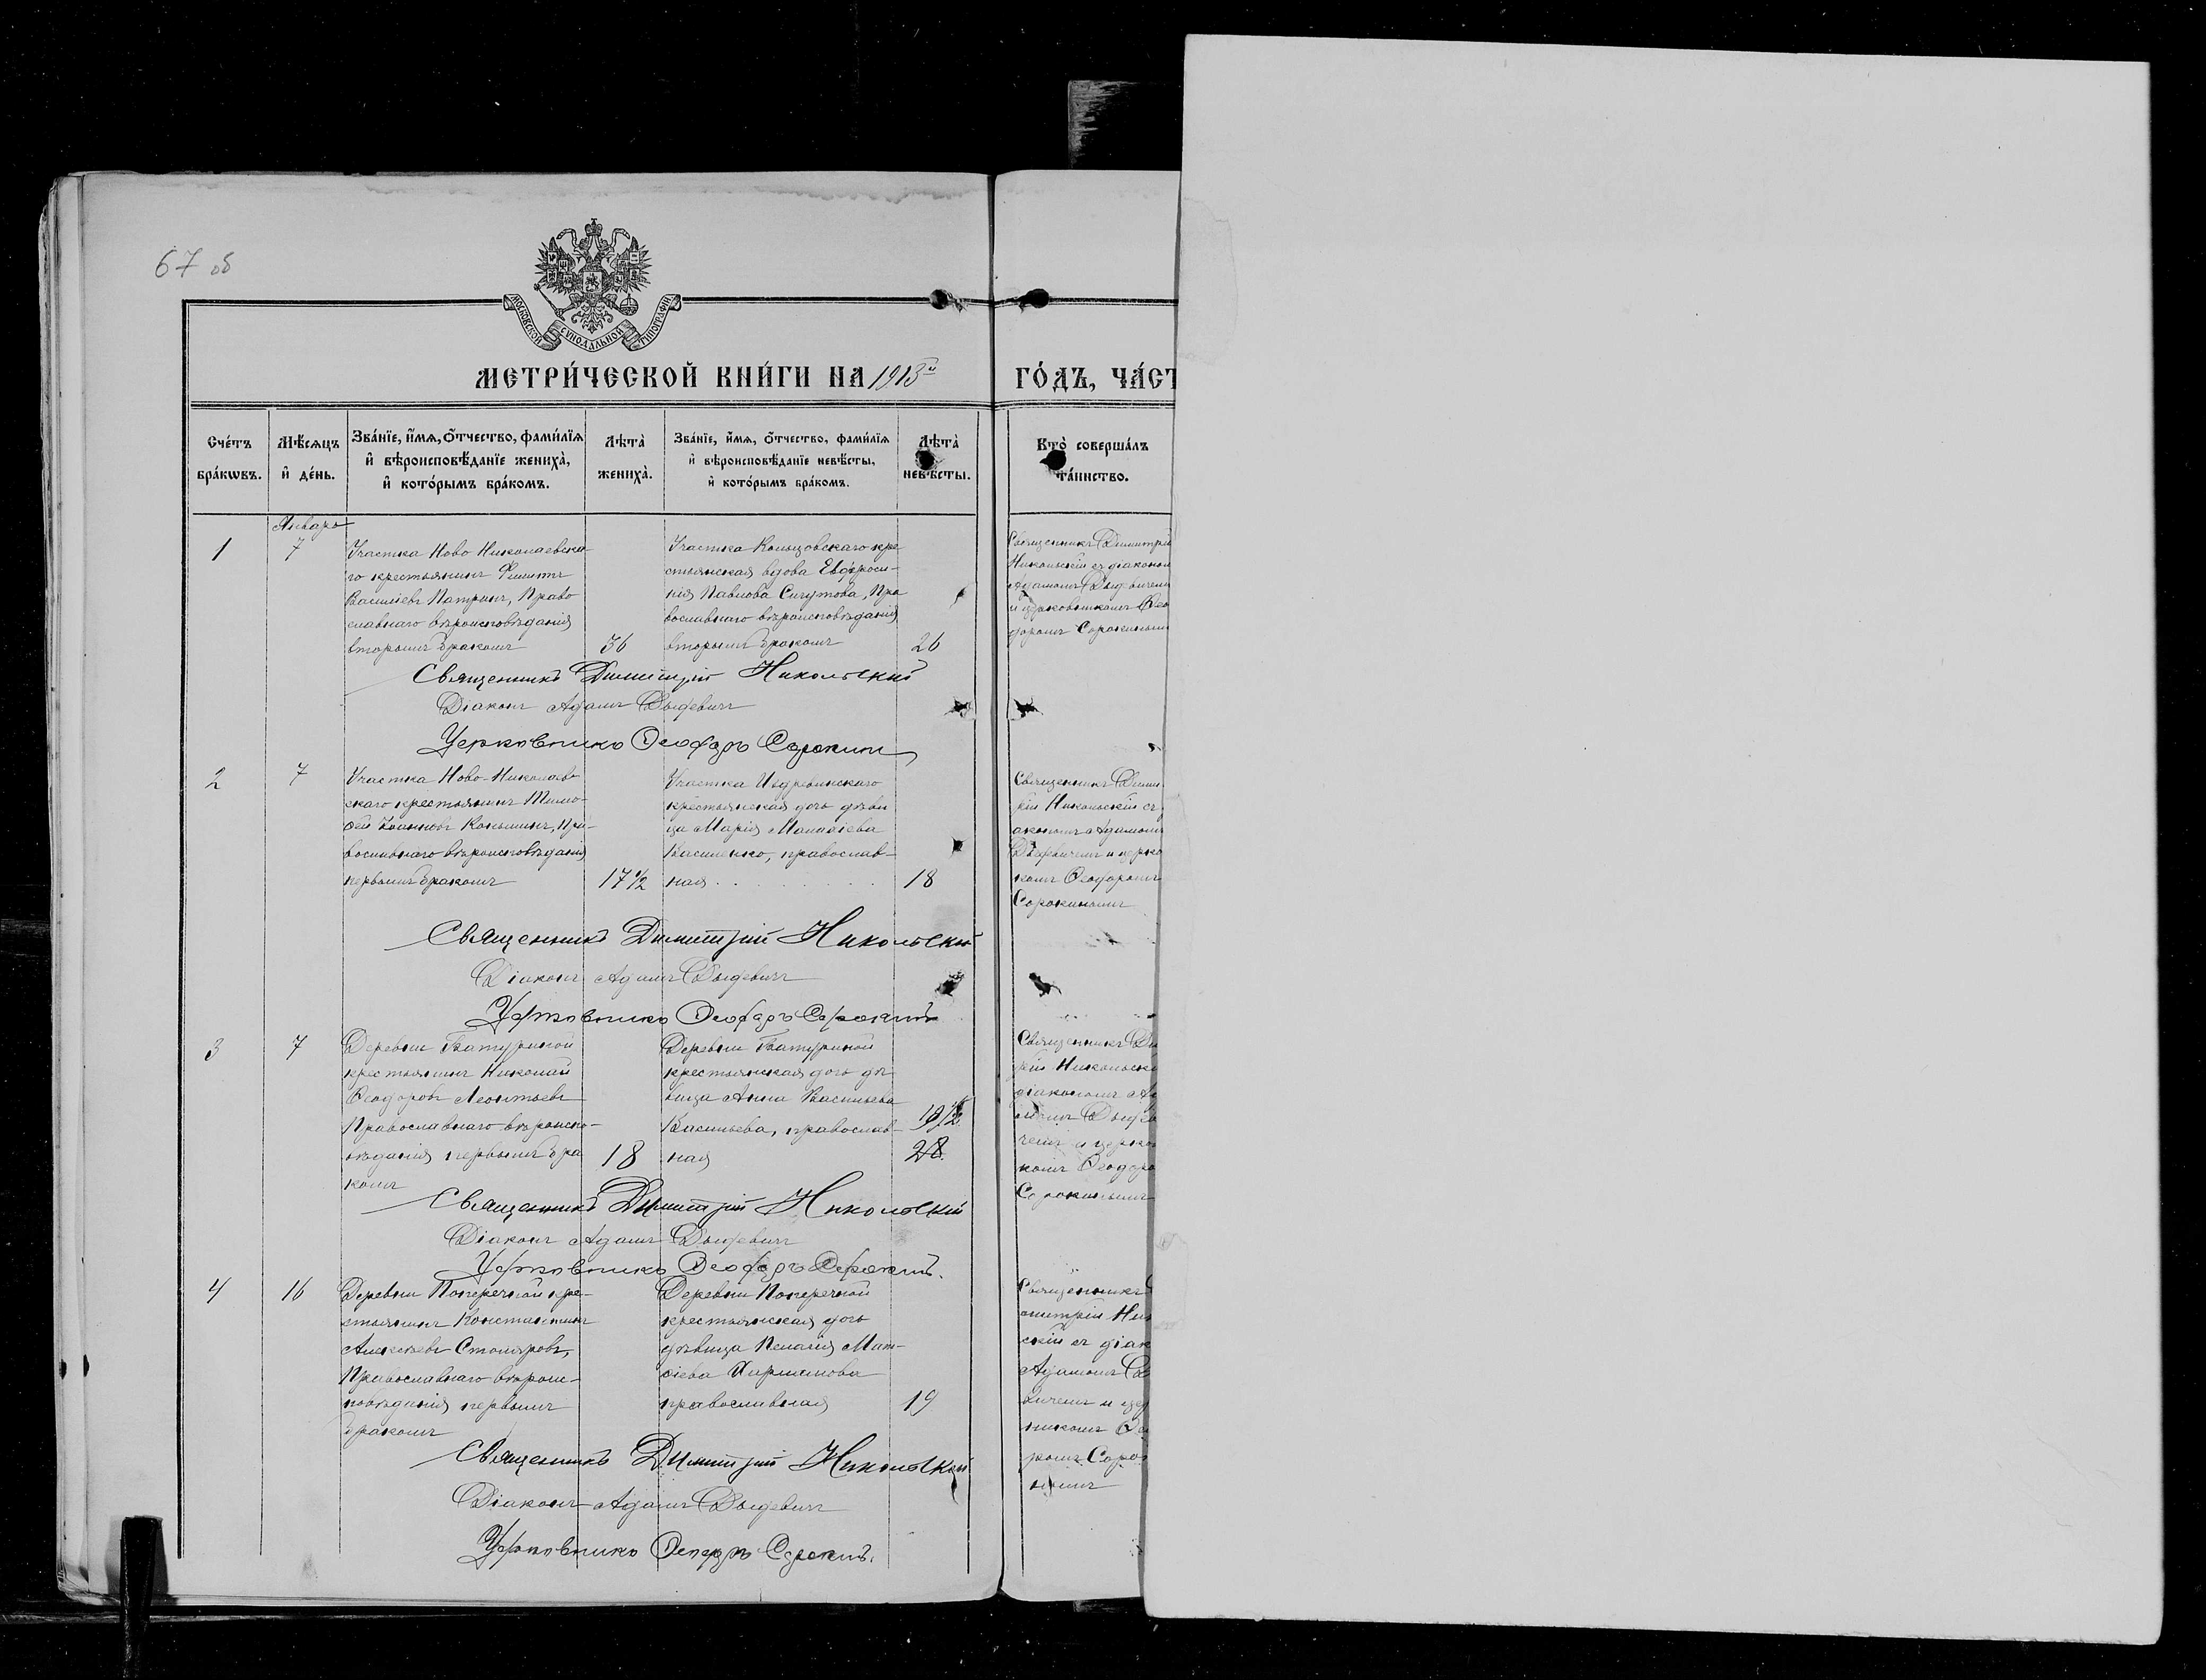 67 об
МОСКОВСКОЙ СУНОДАЛЬНОЙ ТИПОГРАФІИ
МЕТРИ́ЧЕСКОЙ КНИ́ГИ НА 1913й
ГО́ДЪ, ЧА́СТ
Сче́тъ бра́кѡвъ.
Мѣ́сѧцъ и҆ де́нь.
Зва́нїе, и҆́мѧ, ѻ҆́тчество, фами́лїѧ
и҆ вѣроисповѣ́данїе жениха̀,
и҆ кото́рымъ бра́комъ.
Лѣта̀ жениха̀.
Зва́нїе, и҆́мѧ, ѻ҆́тчество, фами́лїѧ
и҆ вѣроисповѣ́данїе невѣ́сты,
и҆ кото́рымъ бра́комъ.
Лѣта̀ невѣ́сты.
Кто̀ соверша́лъ
та́инство.
Январь
1
7
Участка Ново Николаевска-
го крестьянинъ Филиппъ
Василіевъ Патринъ, Право
славнаго вѣроисповѣданія
вторымъ бракомъ
36
Участка Кольцовскаго кре
стьянская вдова Евфроси-
нія Павлова Сигутова, Пра
вославнаго вѣроисповѣданія
вторымъ бракомъ
26
Священникъ Димитрій
Никольскій съ діакономъ
Адамомъ
и церковникомъ Ѳео
доромъ Сорокинымъ
Священникъ Димитрій Никольскій
Діаконъ Адамъ
Церковникъ Ѳеодоръ Сорокинъ
2
7
Участка Ново-Николаев
скаго крестьянинъ Тимо-
ѳей Конышинъ, Пра-
вославнаго вѣроисповѣданія
первымъ бракомъ
17 1/2
Участка Издревинскаго
крестьянская дочь дѣви
ца Марія Манасіева
Василенко, православ-
ная . . . . . . . .
18
Священникъ Дими
рій Никольскій съ
акономъ Адамомъ
и церко
комъ Ѳеодоромъ
Сорокинымъ
Священникъ Димитрій Никольскій
Діаконъ Адамъ
Церковникъ Ѳеодоръ Сорокинъ
3
7
Деревни Батуриной
крестьянинъ Николай
Ѳеодоровъ Леонтьевъ
Православнаго вѣроиспо-
вѣданія первымъ бра
комъ
18
Деревни Батуриной
крестьянская дочь дѣ
вица Анна Васильева
Васильева, православ-
ная
Священникъ Ди
рій Никольск
діакономъ А
чемъ и церков
комъ Ѳеодоро
Сорокинымъ
Священникъ Димитрій Никольскій
Діаконъ Адамъ
Церковникъ Ѳеодоръ Сорокинъ.
4
16
Деревни Поперечной кре-
стьянинъ Константинъ
Алексѣевъ Столяровъ,
Православнаго вѣроис-
повѣданія первымъ
бракомъ
Деревни Поперечной
крестьянская дочь
дѣвица Пелагія Мат-
ѳіева
православная
19
Священникъ
митрій Ник
скій съ діак
Адамомъ
вичемъ и цер
никомъ Ѳео
ромъ Соро
нымъ
Священникъ Димитрій Никольскій
Діаконъ Адамъ
Церковникъ Ѳеодоръ Сорокинъ.